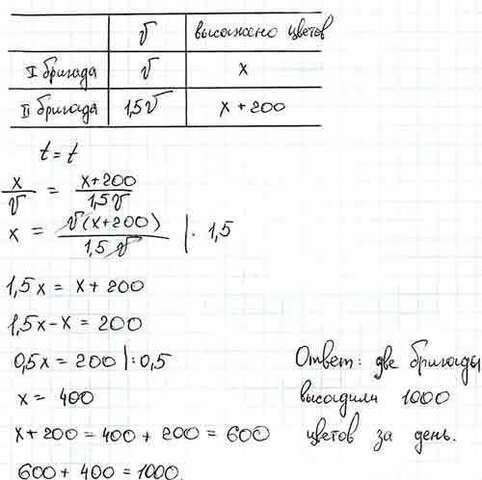 v высажено цветов
I бригада v x
II бригада 1,5v x + 200
t = t
x/v = x+200/1,5v
x = v(x+200)/1,5v |· 1,5
1,5x = x + 200
1,5x-x = 200
0,5x = 200 |:0,5
x = 400
x + 200 = 400 + 200 = 600
600 + 400 = 1000.
Ответ: две бригады
высадили 1000
цветов за день.